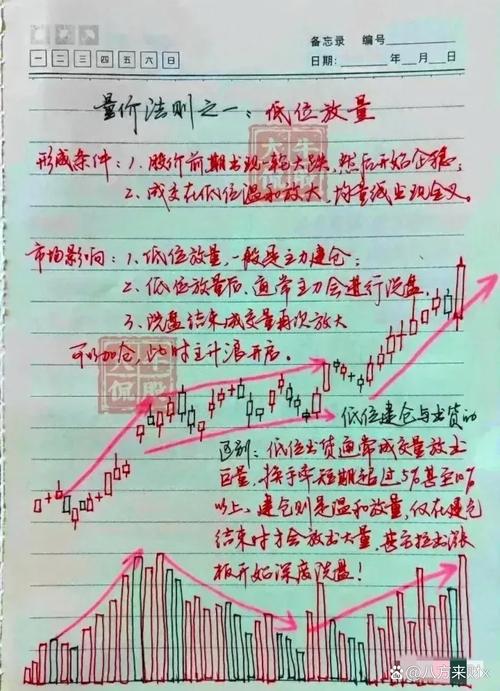 备忘录 编号
一 二 三 四 五 六 日
日期: 年 月 日
量价法则之一：低位放量
形成条件：1、股价前期出现一轮大跌，然后开始企稳；
2、成交在低位温和放大，均量线出现金叉。
市场影响：1、低位放量，一般是主力建仓；
2、低位放量后，通常主力会进行洗盘，
3、洗盘结束成交量再次放大
可以加仓，此时主升浪开启。
大牛侃股
大牛侃股
低位建仓与出货的
区别：低位出货通常成交量放出
巨量，换手率短期超过5%甚至10%
以上，建仓则是温和放量，仅在建仓
结束时才会放出大量，甚至拉出涨
板开始深度洗盘！
八方来财